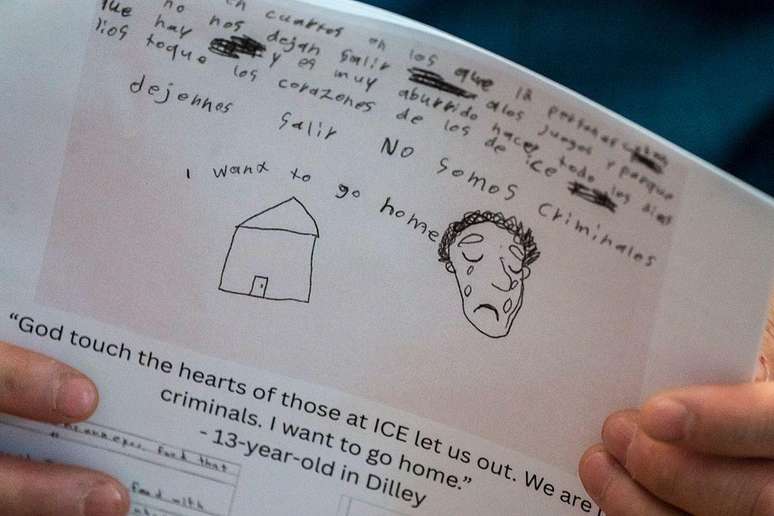 en cuartos en los que 12 personas
que no nos dejan salir
que hay y es muy aburrido hacer todo los dias
dios toque los corazones de los de ice
dejennos salir NO somos criminales
I want to go home
“God touch the hearts of those at ICE let us out. We are
criminals. I want to go home.”
- 13-year-old in Dilley
food that
food with